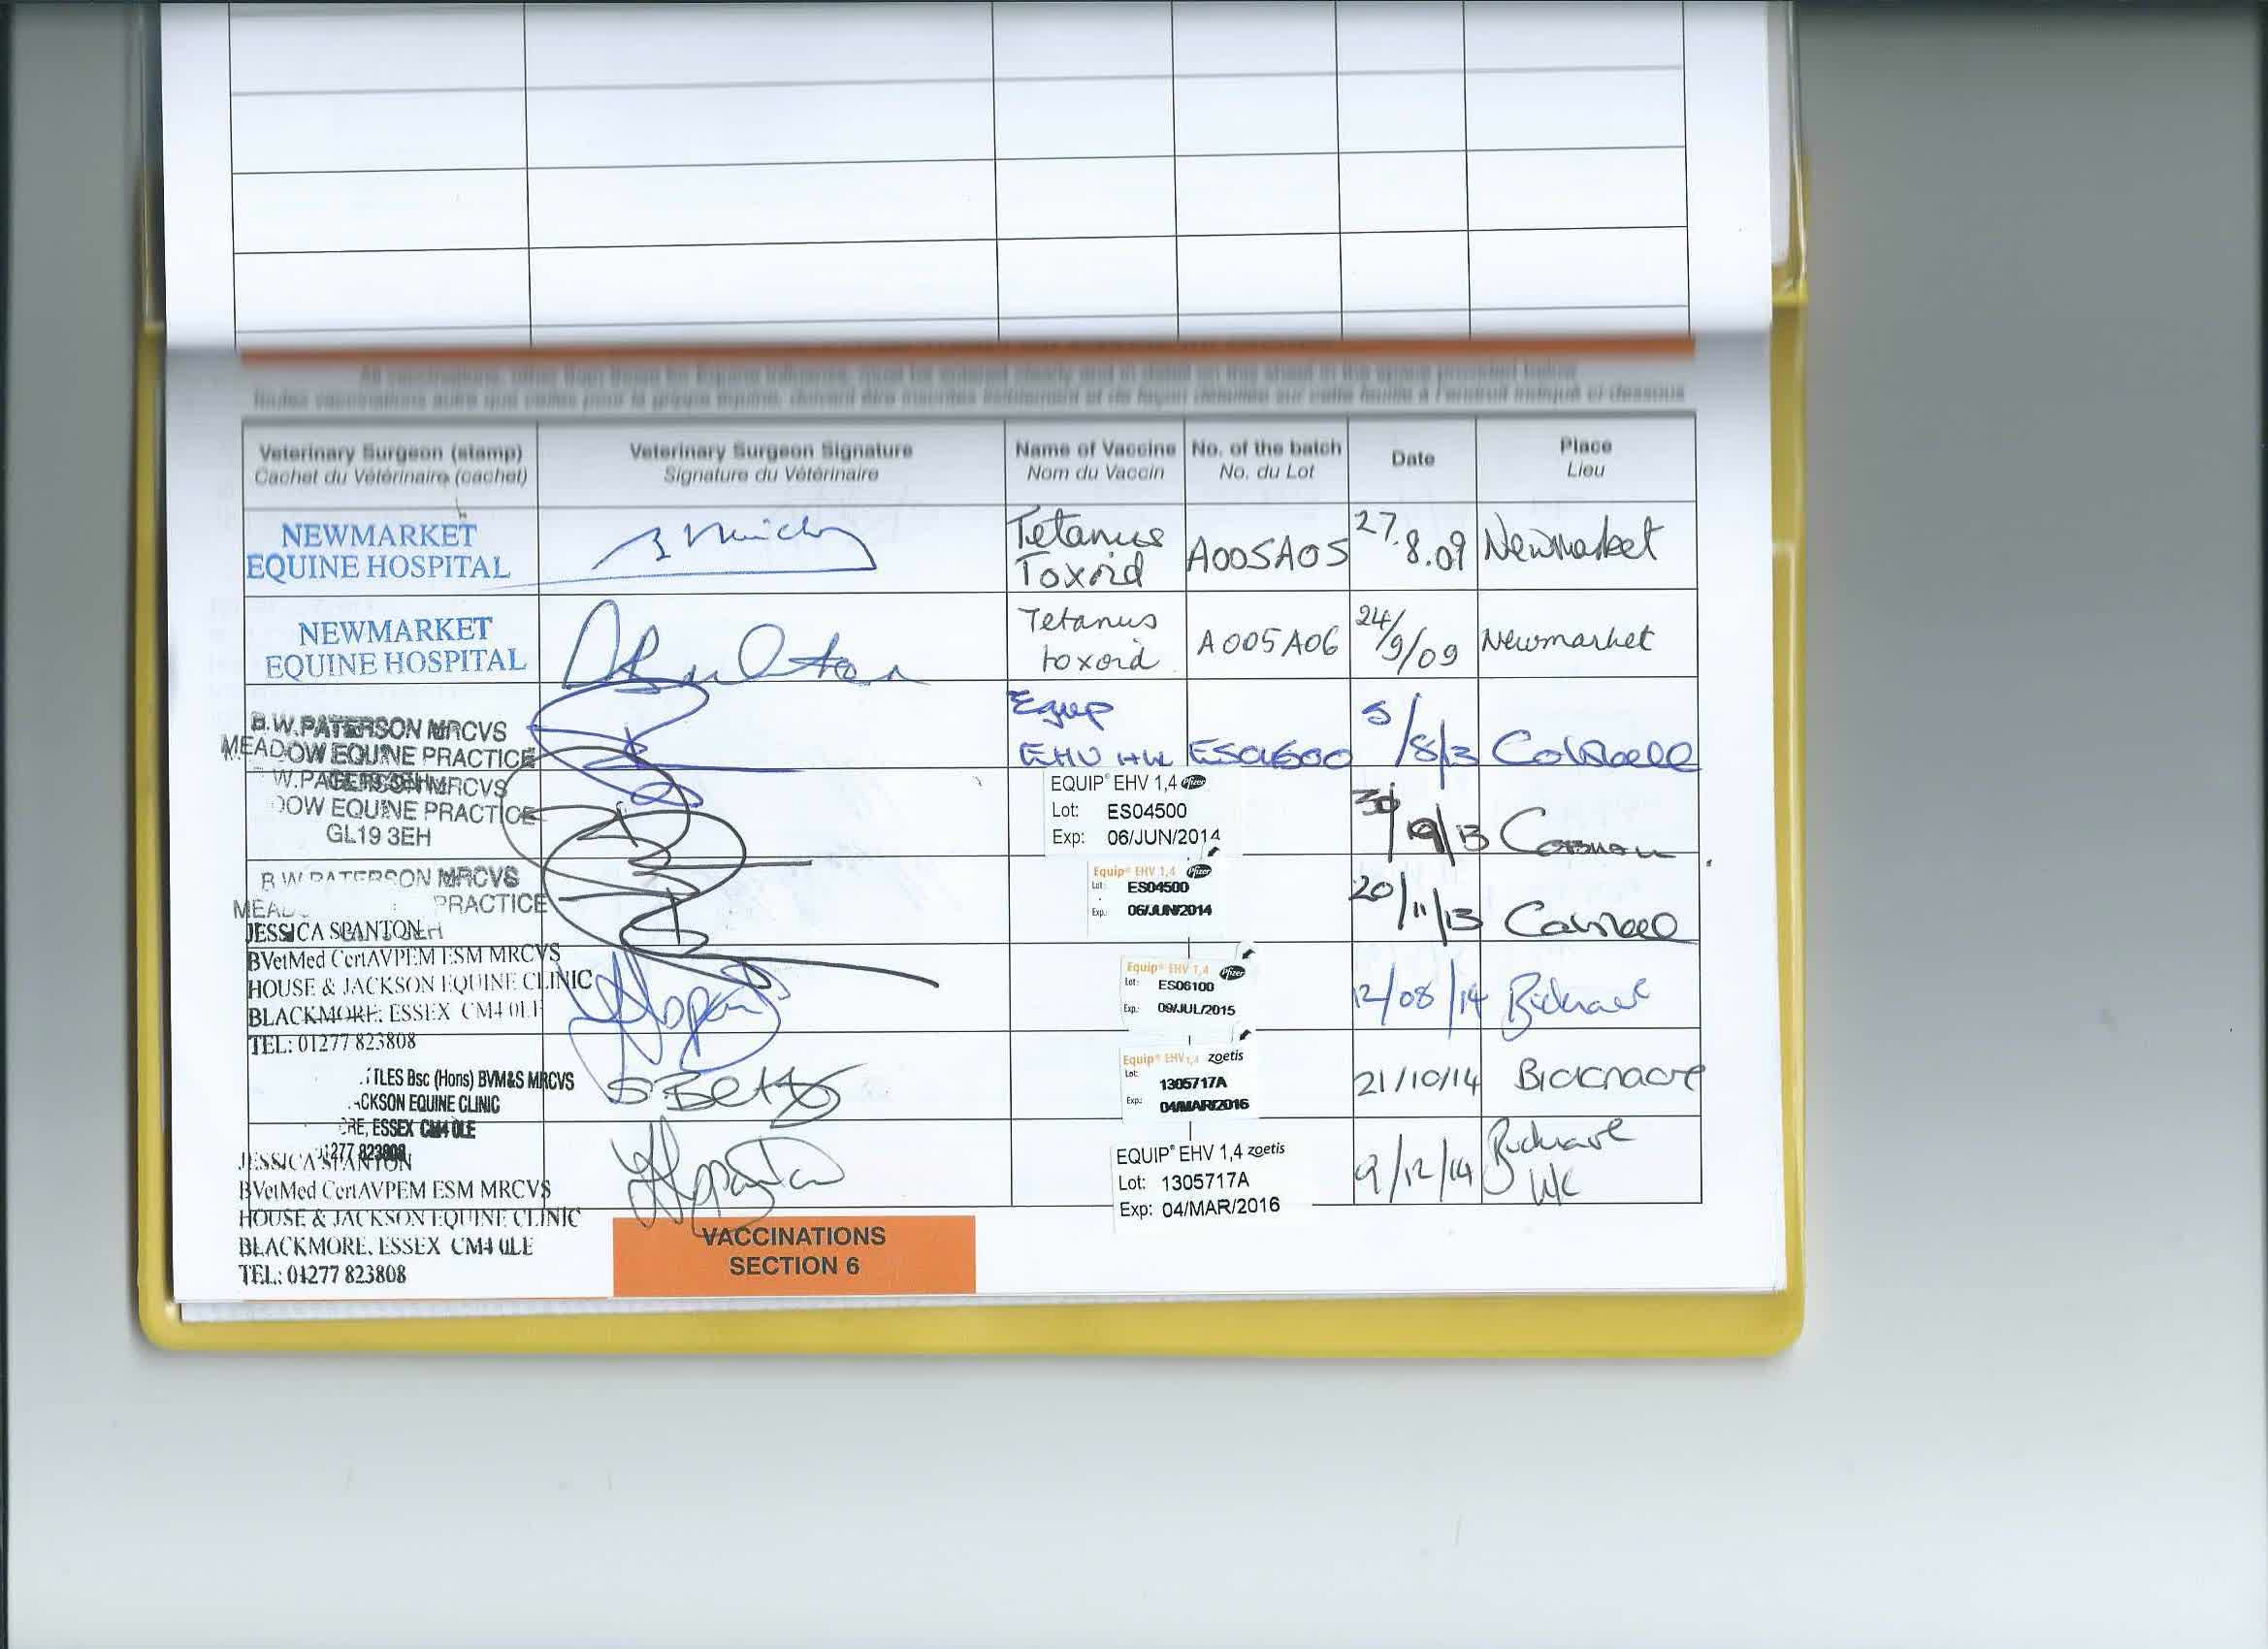 All vaccinations, other than those for Equine Influenza, must be entered clearly and in detail on this sheet in the space provided below
Toutes vaccinations autre que celles pour la grippe équine, doivent être inscrites lisiblement et de façon détaillée sur cette feuille à l'endroit indiqué ci-dessous
Veterinary Surgeon (stamp) Veterinary Surgeon Signature Name of Vaccine No. of the batch Date Place
Cachet du Vétérinaire (cachet) Signature du Vétérinaire Nom du Vaccin No. du Lot Lieu
NEWMARKET
EQUINE HOSPITAL
Tetanus
Toxoid
A005A05 27.8.09 Newmarket
NEWMARKET
EQUINE HOSPITAL
Tetanus
toxoid
A005A06 24/9/09 Newmarket
B.W.PATERSON MRCVS
MEADOW EQUINE PRACTICE
Equip
EHV 5/8/13
W.PATERSON MRCVS
DOW EQUINE PRACTICE
GL19 3EH
EQUIP® EHV 1,4 Pfizer
Lot: ES04500
Exp: 06/JUN/2014
B.W PATERSON MRCVS
PRACTICE
Equip® EHV 1,4 Pfizer
Lot: ES04500
Exp.: 06/JUN/2014
20/11/13
JESSICA SPANTON
BVetMed CertAVPEM ESM MRCVS
HOUSE & JACKSON EQUINE CLINIC
BLACKMORE, ESSEX CM4 0LE
TEL: 01277 823808
Equip® EHV 1,4 Pfizer
Lot: ES06100
Exp.: 09/JUL/2015
12/08/14
TLES Bsc (Hons) BVM&S MRCVS
CKSON EQUINE CLINIC
RE, ESSEX CM4 0LE
1277 823808
Equip® EHV 1,4 zoetis
Lot: 1305717A
Exp.: 04/MAR/2016
21/10/14
JESSICA SPANTON
BVetMed CertAVPEM ESM MRCVS
HOUSE & JACKSON EQUINE CLINIC
BLACKMORE, ESSEX CM4 0LE
TEL: 01277 823808
EQUIP® EHV 1,4 zoetis
Lot: 1305717A
Exp: 04/MAR/2016
9/12/14
VACCINATIONS
SECTION 6